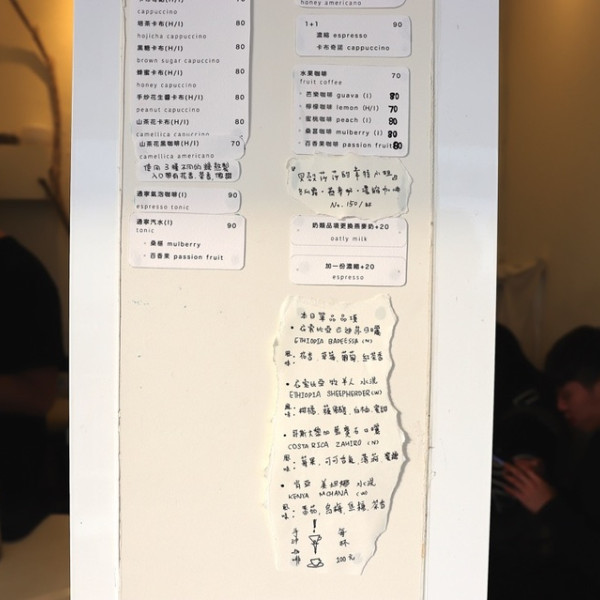 cappuccino
焙茶卡布(H/I) 80
hojicha cappuccino
黑糖卡布(H/I) 80
brown sugar cappuccino
蜂蜜卡布(H/I) 80
honey cappuccino
手炒花生醬卡布(H/I) 80
peanut cappuccino
山茶花卡布(H/I) 80
camellica cappuccino
山茶花黑咖啡(H/I) 70
camellica americano
使用3種不同的
入口帶有花香、茶香、微甜
通寧氣泡咖啡(I) 90
espresso tonic
通寧汽水(I) 90
tonic
· 桑椹 mulberry
· 百香果 passion fruit
honey americano
1+1 90
濃縮 espresso
卡布奇諾 cappuccino
水果咖啡 70
fruit coffee
· 芭樂咖啡 guava (I) 80
· 檸檬咖啡 lemon (H/I) 70
· 蜜桃咖啡 peach (I) 90
· 桑葚咖啡 mulberry (I) 80
· 百香果咖啡 passion fruit 80
No. 150/杯
奶類品項更換燕麥奶+20
oatly milk
加一份濃縮+20
espresso
本日單品品項
ETHIOPIA BADEESSA (N)
風味: 花香、草莓、葡萄、紅茶香
• 衣索比亞 牧羊人 水洗
ETHIOPIA SHEEPHERDER (W)
風味: 柑橘、蘋果醋、白柚、蜜甜
COSTA RICA ZAMIRO (N)
風味: 莓果、可可
• 肯亞 水洗
KENYA MCHANA (W)
風味: 番茄、烏梅、黑糖、茶香
手沖咖啡 每杯 200元